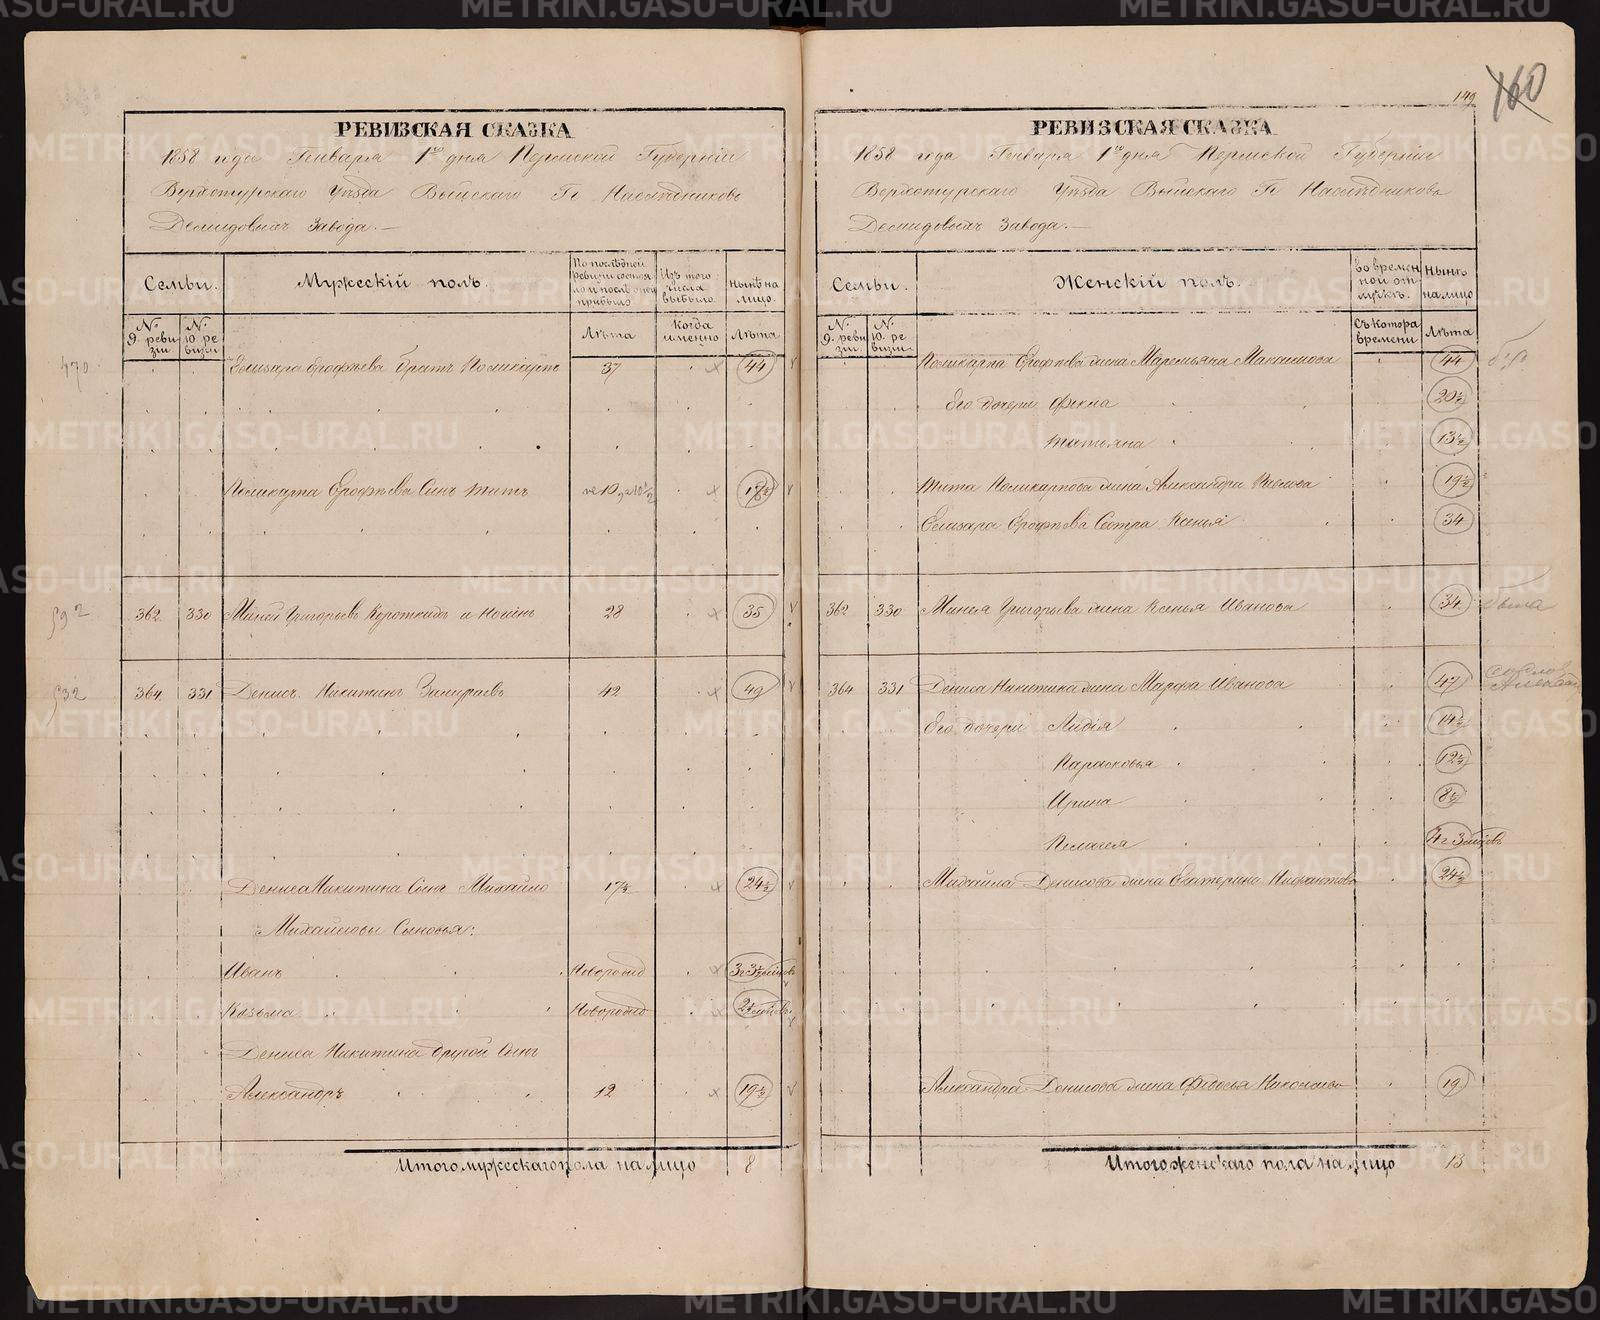 149
160
РЕВИЗСКАЯ СКАЗКА
1858 года Генваря 1го дня Пермской Губернiи
Верхотурскаго Уѣзда Выйскаго Гг Наслѣдниковъ
Демидовыхъ Завода.—
Семьи.
Мужескiй полъ.
По послѣдней ревизiи состояло и послѣ оной прибыло.
Изъ того числа выбыло.
Нынѣ на лицо.
№ 9. ревизiи
№ 10. ревизiи
Лѣта
Когда именно
Лѣта
470
Елизара Ерофѣева братъ Поликарпъ 37 44
Поликарпа Ерофѣева Сынъ Титъ 10
592
362. 330 Миней Григорьевъ Короткихъ и 28 35
532
364. 331 Денисъ Никитинъ 42 49
Дениса Никитина Сынъ Михайло 17½ 24½
Михайловы Сыновья:
Иванъ Новорожд
Козьма Новорожд
Дениса Никитина другой Сынъ
Александръ 12 19½
Итого мужескаго пола на лицо 8
РЕВИЗСКАЯ СКАЗКА
1858 года Генваря 1го дня Пермской Губернiи
Верхотурскаго Уѣзда Выйскаго Гг Наслѣдниковъ
Демидовыхъ Завода.—
Семьи.
Женскiй полъ.
Во временной отлучкѣ.
Нынѣ на лицо
№ 9. ревизiи
№ 10. ревизiи.
Съ котора времени
Лѣта
Поликарпа Ерофѣева жена Маремьяна Максимова 44
Его дочери Фекла 20½
Татьяна 13½
Тита Поликарпова жена Александра Павлова 19½
Елизара Ерофѣева Сестра Ксенья 34
362 330 Минея Григорьева жена Ксенья Иванова 34
364 331 Дениса Никитина жена Марфа Иванова 47
Его дочери Лидiя 14½
Парасковья 12½
Ирина 8½
Пелагея 4г 3 мѣсовъ
Михайла Денисова жена Екатерина 24½
Александра Денисова жена Федосья Николаева 19
Итого женскаго пола на лицо 13
METRIKI.GASO-URAL.RU